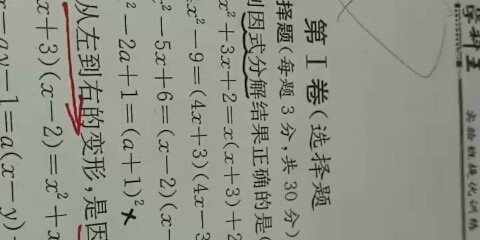 实验班提优训练
第Ⅰ卷(选择题
择题(每题3分,共30分)
因式分解结果正确的是(
x²+3x+2=x(x+3)+2
x²-9=(4x+3)(4x-3
²-5x+6=(x-2)(x-
²-2a+1=(a+1)²×
从左到右的变形,是因
x+3)(x-2)=x²+x
-ay-1=a(x-y)-